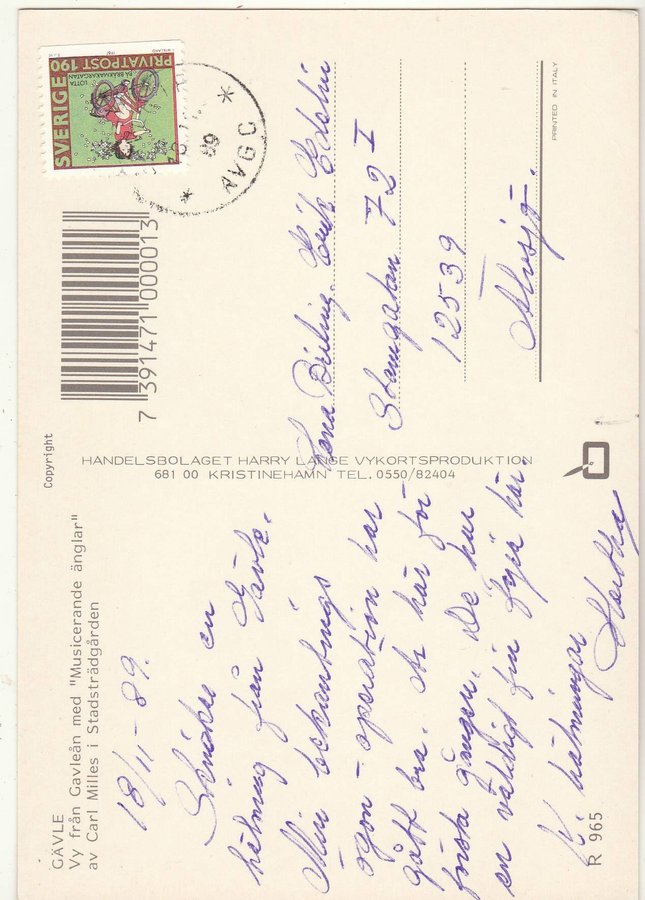 GÄVLE
Vy från Gavleån med "Musicerande änglar"
av Carl Milles i Stadsträdgården
18/11-89.
Skickas en
hälsning från Gävle.
Min bekantings
ögon-operation har
gått bra. Är här för
första gången. De har
en väldigt fin fyra här.
V. hälsningar
R 965
Copyright
7 391471 000013
HANDELSBOLAGET HARRY LANGE VYKORTSPRODUKTION
681 00 KRISTINEHAMN TEL. 0550/82404
SVERIGE
PRIVATPOST 190
LOTTA
PÅ BRÅKMAKARGATAN
89
* AVGC *
Erik
Stamgatan 72 I
12539
Älvsjö.
PRINTED IN ITALY